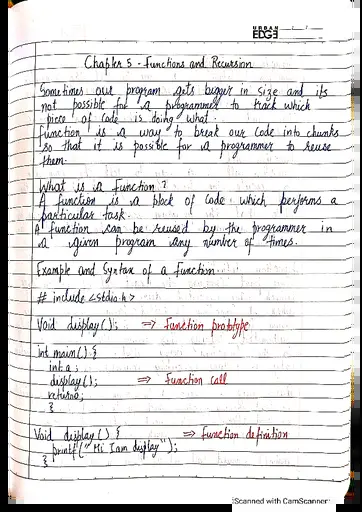 URBAN
EDGE
Chapter 5 - Functions and Recursion
Sometimes our program gets bigger in size and its
not possible for a programmer to track which
piece of code is doing what.
Function is a way to break our code into chunks
so that it is possible for a programmer to reuse
them.
What is a Function ?
A function is a block of code which performs a
particular task.
A function can be reused by the programmer in
a given program any number of times.
Example and Syntax of a Function.
# include <stdio.h>
Void display(); ⇒ Function prototype
int main() {
int a;
display(); ⇒ Function call
return 0;
}
Void display() { ⇒ Function definition
printf("Hi I am display");
}
Scanned with CamScanner